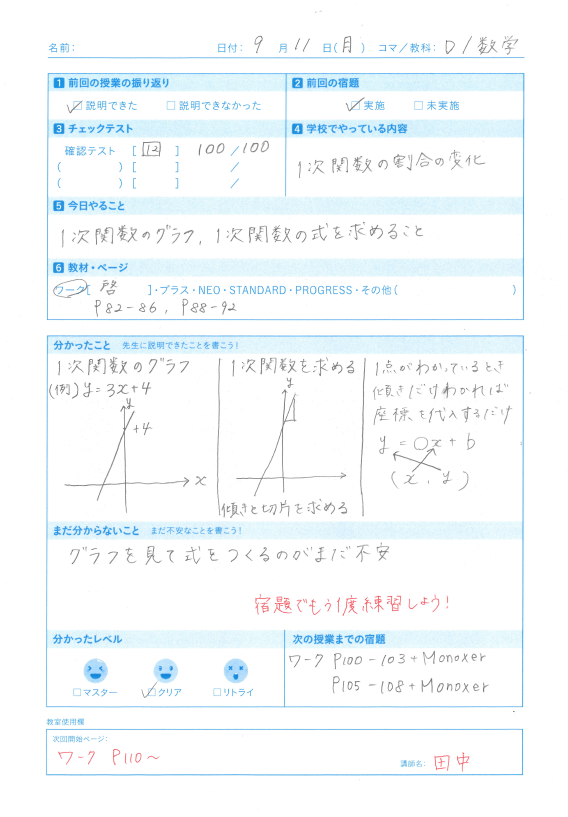 名前: 日付: 9 月 11 日(月) コマ/教科: D / 数学
1 前回の授業の振り返り
☑ 説明できた □ 説明できなかった
2 前回の宿題
☑ 実施 □ 未実施
3 チェックテスト
確認テスト [ 12 ] 100 / 100
( ) [ ] /
( ) [ ] /
4 学校でやっている内容
1次関数の割合の変化
5 今日やること
1次関数のグラフ, 1次関数の式を求めること
6 教材・ページ
ワーク[ 啓 ]・プラス・NEO・STANDARD・PROGRESS・その他( )
P82-86, P88-92
分かったこと 先生に説明できたことを書こう!
1次関数のグラフ
(例) y=3x+4
y
+4
x
1次関数を求める
y
傾きと切片を求める
1点がわかっているとき
傾きだけわかれば
座標を代入するだけ
y = ○x + b
(x, y)
まだ分からないこと まだ不安なことを書こう!
グラフを見て式をつくるのがまだ不安
宿題でもう1度練習しよう!
分かったレベル
□マスター ☑クリア □リトライ
次の授業までの宿題
ワーク P100-103+Monoxer
P105-108+Monoxer
教室使用欄
次回開始ページ:
ワーク P110～
講師名: 田中